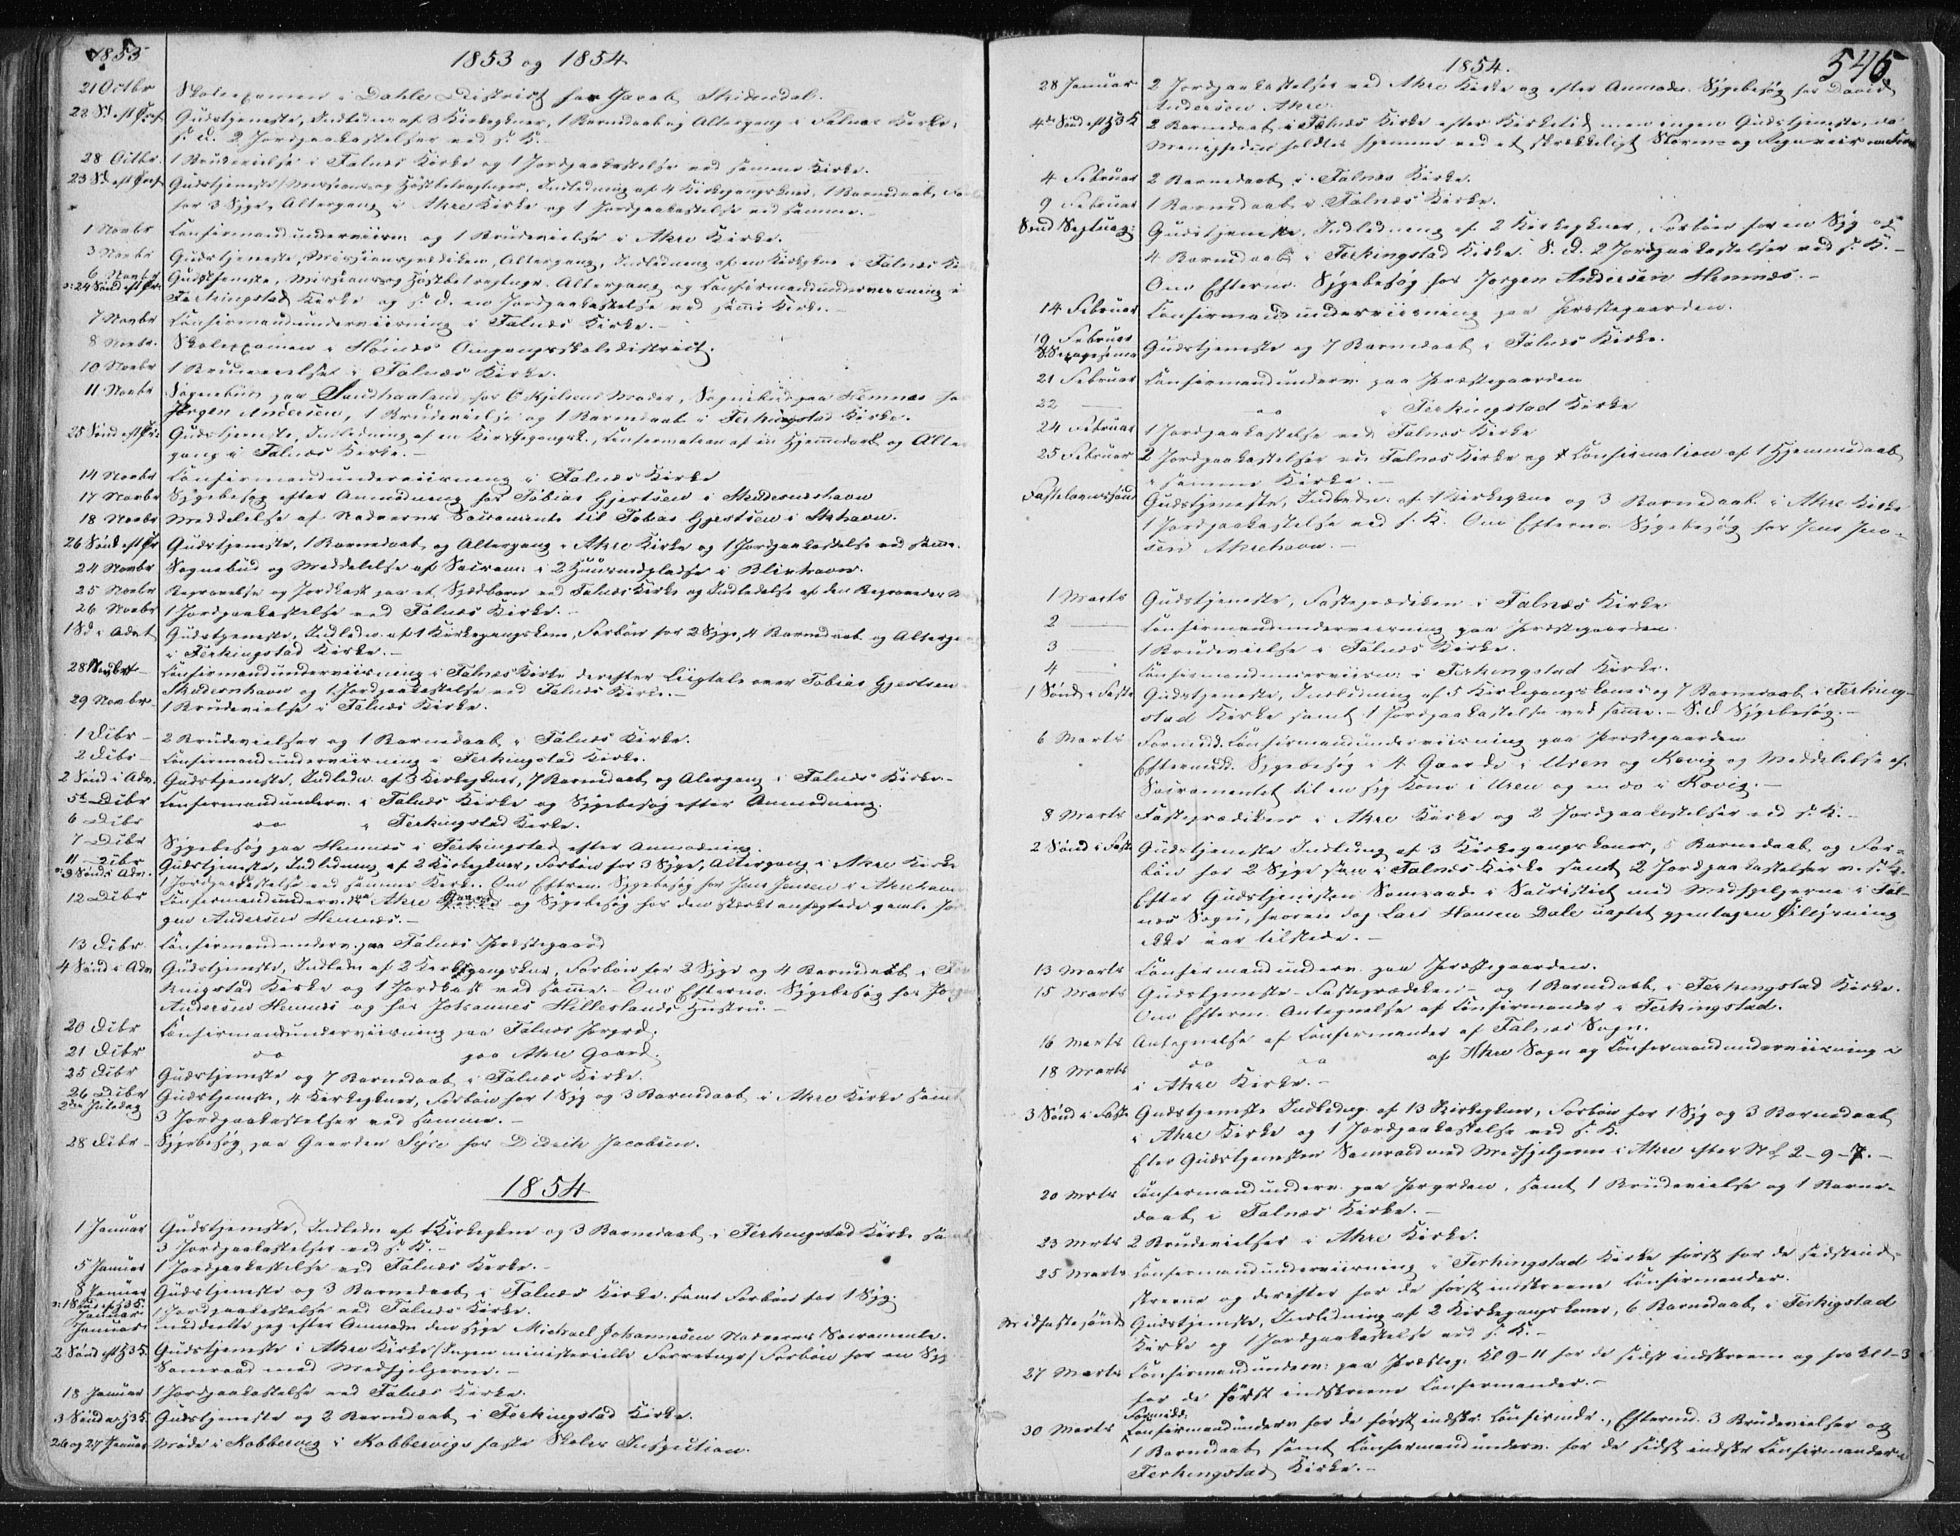 1853
1853 og 1854
21 Octbr Skoleexamen i Dahle District hos Jacob Skidendal.
22 Sd eft Tref. Gudstjeneste, Indledn. af 3 Kirkegkner, 1 Barnedaab og Altergang i Falnæs Kirke,
S. D. 2 Jordpaakastelser ved s. K.
28 Octbr. 1 Brudevielse i Falnæs Kirke og 1 Jordpaakastelse ved samme Kirke.
23 Sd eft Tref. Gudstjeneste, Indledning af 4 Kirkegangskner, 1 Barnedaab,
for 3 Syge, Altergang i Akre Kirke og 1 Jordpaakastelse ved samme.
1 Novbr Confirmandunderviisn. og 1 Brudevielse i Akre Kirke.
3 Novbr Gudstjeneste, Missionsprædiken, Altergang, Indledning af en Kirkekne i Falnæs
6 Novbr Gudstjeneste, Missions og Høstbetragtngr. Altergang og Confirmandunderviisning i
24 Sønd eft Tr. Ferkingstad Kirke og S. D. en Jordpaakastelse ved samme Kirke.
7 Novbr Confirmandunderviisning i Falnæs Kirke.
8 Novbr. Skoleexamen i Høinæs Omgangsskoledistrict.
10 Novbr 1 Brudevielse i Falnæs Kirke.
11 Novbr Sognebud paa Sandhaaland for O Kjelsens Moder, Sognebud paa Hemnæs for
Jørgen Andersen, 1 Brudevielse og 1 Barnedaab i Ferkingstad Kirke.
25 Sønd eft Tr. Gudstjeneste, Indledning af en Kirkegangsk., Confirmation af en Hjemmedøbt og Alter-
gang i Falnæs Kirke.
14 Novbr Confirmandunderviisning i Falnæs Kirke
17 Novbr Sygebesøg efter Anmodning hos Tobias Gjertsen i Skudesneshavn
18 Novbr Meddelelse af Nadverens Sacramente til Tobias Gjertsen i Skhavn.
26 Sønd eft Tr Gudstjeneste, 1 Barnedaab og Altergang i Akre Kirke og 1 Jordpaakastelse ved samme.
24 Novbr Sognebud og Meddelelse af Sacram: i 2 Huusmdpladse i Blikhavn.
25 Novbr Begravelse og Jordkast paa et Spædbarn ved Falnæs Kirke
26 Novbr 1 Jordpaakastelse ved Falnæs Kirke.
1 Sd i Advt Gudstjeneste, Indledn. af 1 Kirkegangskone, Forbøn for 2 Syge, 4 Barnedaab og Altergang
i Ferkingstad Kirke.
28 Novbr Confirmandunderviisning i Falnæs Kirke derefter Liigtale over Tobias Gjertsen
Skudesnhavn og 1 Jordpaakastelse ved Falnæs Kirke.
29 Novbr 1 Brudevielse i Falnæs Kirke.
1 Dcbr 2 Brudevielser og 1 Barnedaab i Falnæs Kirke.
2 Dcbr Confirmandunderviisning i Ferkingstad Kirke.
2 Sønd i Adv. Gudstjeneste, Indledn. af 3 Kirkegkner, 7 Barnedaab og Altergang i Falnæs Kirke
5t Dcbr Confirmandunderv. i Falnæs Kirke og Sygebesøg efter Anmodning.
6 Dcbr do i Ferkingstad Kirke.
7 Dcbr Sygebesøg paa Hemnæs i Ferkingstad efter Anmodning.
11 Dcbr Gudstjeneste, Indledning af 2 Kirkegkner, Forbøn for 3 Syge, Altergang i Akre Kirke
3 Sønd i Adv. 1 Jordpaakastelse ved samme Kirke. Om Efterm. Sygebesøg hos Jens Jensen i Akrehavn
12 Dcbr Confirmandunderv. paa Akre og Sygebesøg hos den stærkt anfægtede gamle Jør-
gen Andersen Hemnæs.
13 Dcbr Confirmandunderv. paa Falnæs Præstegaard
4 Sønd i Adv Gudstjeneste, Indledn af 2 Kirkegangskner, Forbøn for 2 Syge og 4 Barnedaab i Fer-
kingstad Kirke og 1 Jordkast ved samme. Om Efterm. Sygebesøg hos Jørgen
Andersen Hemnæs og hos Johannes Hillesland's Hustru.
20 Dcbr Confirmandunderviisning paa Falnæs Prgrd.
21 Dcbr do paa Akre Gaard.
25 Dcbr Gudstjeneste og 7 Barnedaab i Falnæs Kirke.
26 Dcbr Gudstjeneste, 4 Kirkegkner, Forbøn for 1 Syg og 3 Barnedaab i Akre Kirke samt
2den Juledag 3 Jordpaakastelser ved samme.
28 Dcbr Sygebesøg paa Gaarden Syre hos Didrik Jacobsen.
1854
1 Januar Gudstjeneste, Indledn af 1 Kirkegkne og 3 Barnedaab i Ferkingstad Kirke samt
3 Jordpaakastelser ved s. K.
5 Januar 1 Jordpaakastelse ved Falnæs Kirke.
8 Januar Gudstjeneste og 3 Barnedaab i Falnæs Kirke samt Forbøn for 1 Syg.
1 Jordpaakastelse ved Falnæs Kirke.
Januar meddeelte jeg efter Anmodn den syge Michael Johannesen Nadverens Sacramente.
2 Sønd eft H3K. Gudstjeneste i Akre Kirke (Ingen ministerielle Forretngr) Forbøn for en Syg
Samraad med Medhjelperne.
18 Januar 1 Jordpaakastelse ved Falnæs Kirke.
3 Sønd eft H3K. Gudstjeneste og 2 Barnedaab i Ferkingstad Kirke.
26 og 27 Januar Møde i Kobbervig i Kobbervigs faste Skoles Inspection.
1854.
546
28 Januar 2 Jordpaakastelser ved Akre Kirke og efter Anmodn. Sygebesøg hos David
Andersen Akre.
4de Sønd eft H3K 2 Barnedaab i Falnæs Kirke efter Kirketid men ingen Gudstjeneste, da
Menigheden holdtes hjemme ved et skrækkeligt Storm- og Regnveir
4 Februar 2 Barnedaab i Falnæs Kirke.
9 Februar 1 Barnedaab i Falnæs Kirke.
Sønd Septuag: Gudstjeneste, Indledning af 2 Kirkegkner, Forbøn for en Syg og
4 Barnedaab i Ferkingstad Kirke. S. D. 2 Jordpaakastelser ved s. K.
Om Efterm. Sygebesøg hos Jørgen Andersen Hemnæs.
14 Februar Confirmandunderviisning paa Præstegaarden.
19 Februar Gudstjeneste og 7 Barnedaab i Falnæs Kirke.
S. Sexagesima
21 Februar Confirmandunderv. paa Præstegaarden
22 — do i Ferkingstad Kirke
24 Februar 1 Jordpaakastelse ved Falnæs Kirke
25 Februar 2 Jordpaakastelser ved Falnæs Kirke og 1 Confirmation af 1 Hjemmedøbt
i samme Kirke.
Fastelavnssønd Gudstjeneste, Indledn: af 1 Kirkegkne og 3 Barnedaab i Akre Kirke
1 Jordpaakastelse ved s. K. Om Efterm. Sygebesøg hos Jens Jen-
sen Akrehavn.
1 Marts Gudstjeneste, Fasteprædiken i Falnæs Kirke
2 — Confirmandunderviisning paa Præstegaarden.
3 — 1 Brudevielse i Falnæs Kirke.
4 — Confirmandunderviisn: i Ferkingstad Kirke.
1 Sønd i Faste Gudstjeneste, Indledning af 5 Kirkegangskoner og 7 Barnedaab i Ferking-
stad Kirke samt 1 Jordpaakastelse ved samme. S. D Sygebesøg.
6 Marts Formidd. Confirmandunderviisning paa Præstegaarden
Eftermidd. Sygebesøg i 4 Gaarde i Uren og Hovig og Meddelelse af
Sacramentet til en syg Kone i Uren og en do i Hovig.
8 Marts Fasteprædiken i Akre Kirke og 2 Jordpaakastelser ved s. K.
2 Sønd i Faste Gudstjeneste Indledng af 3 Kirkegangskoner, Barnedaab og For-
bøn for 2 Syge i Falnæs Kirke samt 2 Jordpaakastelser v. s. K.
Efter Gudstjenesten Samraad i Sacristiet med Medhjelperne i Fal-
næs Sogn, hvoraf dog Lars Hansen Dale uagtet gjentagen Tilsigning
ikke var tilstede.
13 Marts Confirmandunderv. paa Præstegaarden.
15 Marts Gudstjeneste - Fasteprædiken - og 1 Barnedaab i Ferkingstad Kirke.
Om Efterm. Antagnelse af Confirmander i Ferkingstad.
16 Marts Antagnelse af Confirmander af Falnæs Sogn.
18 Marts do do af Akre Sogn og Confirmandunderviisning i
i Akre Kirke.
3 Sønd i Faste Gudstjeneste Indledng. af 13 Kirkegkner, Forbøn for 1 Syg og 3 Barnedaab
i Akre Kirke og 1 Jordpaakastelse ved s. K.
Efter Gudstjenesten Samraad med Medhjelperne i Akre efter N L 2-9-7.
20 Mrts Confirmandunderv. paa Prgrden, samt 1 Brudevielse og 1 Barne-
daab i Falnæs Kirke.
23 Mrts 2 Brudevielser i Akre Kirke.
25 Marts Confirmandunderviisning i Ferkingstad Kirke først for de sidst ind-
skrevne og derefter for de først indskrevne Confirmander.
Midfastesønd Gudstjeneste, Indledning af 2 Kirkegangskoner, 6 Barnedaab i Ferkigstad
Kirke og 1 Jordpaakastelse ved s. K.
27 Marts Confirmandunderv: paa Præsteg: Kl 9-11 for de sidst indskrevne og fra Kl 1-3
for de først indskrevne Confirmander.
Formidd:
30 Marts Confirmandunderv for de først indskr. Confirmdr., Eftermd. 3 Brudevielser og
1 Barnedaab samt Confirmandunderv. for de sidst indskr Confirmander i
Ferkingstad Kirke.